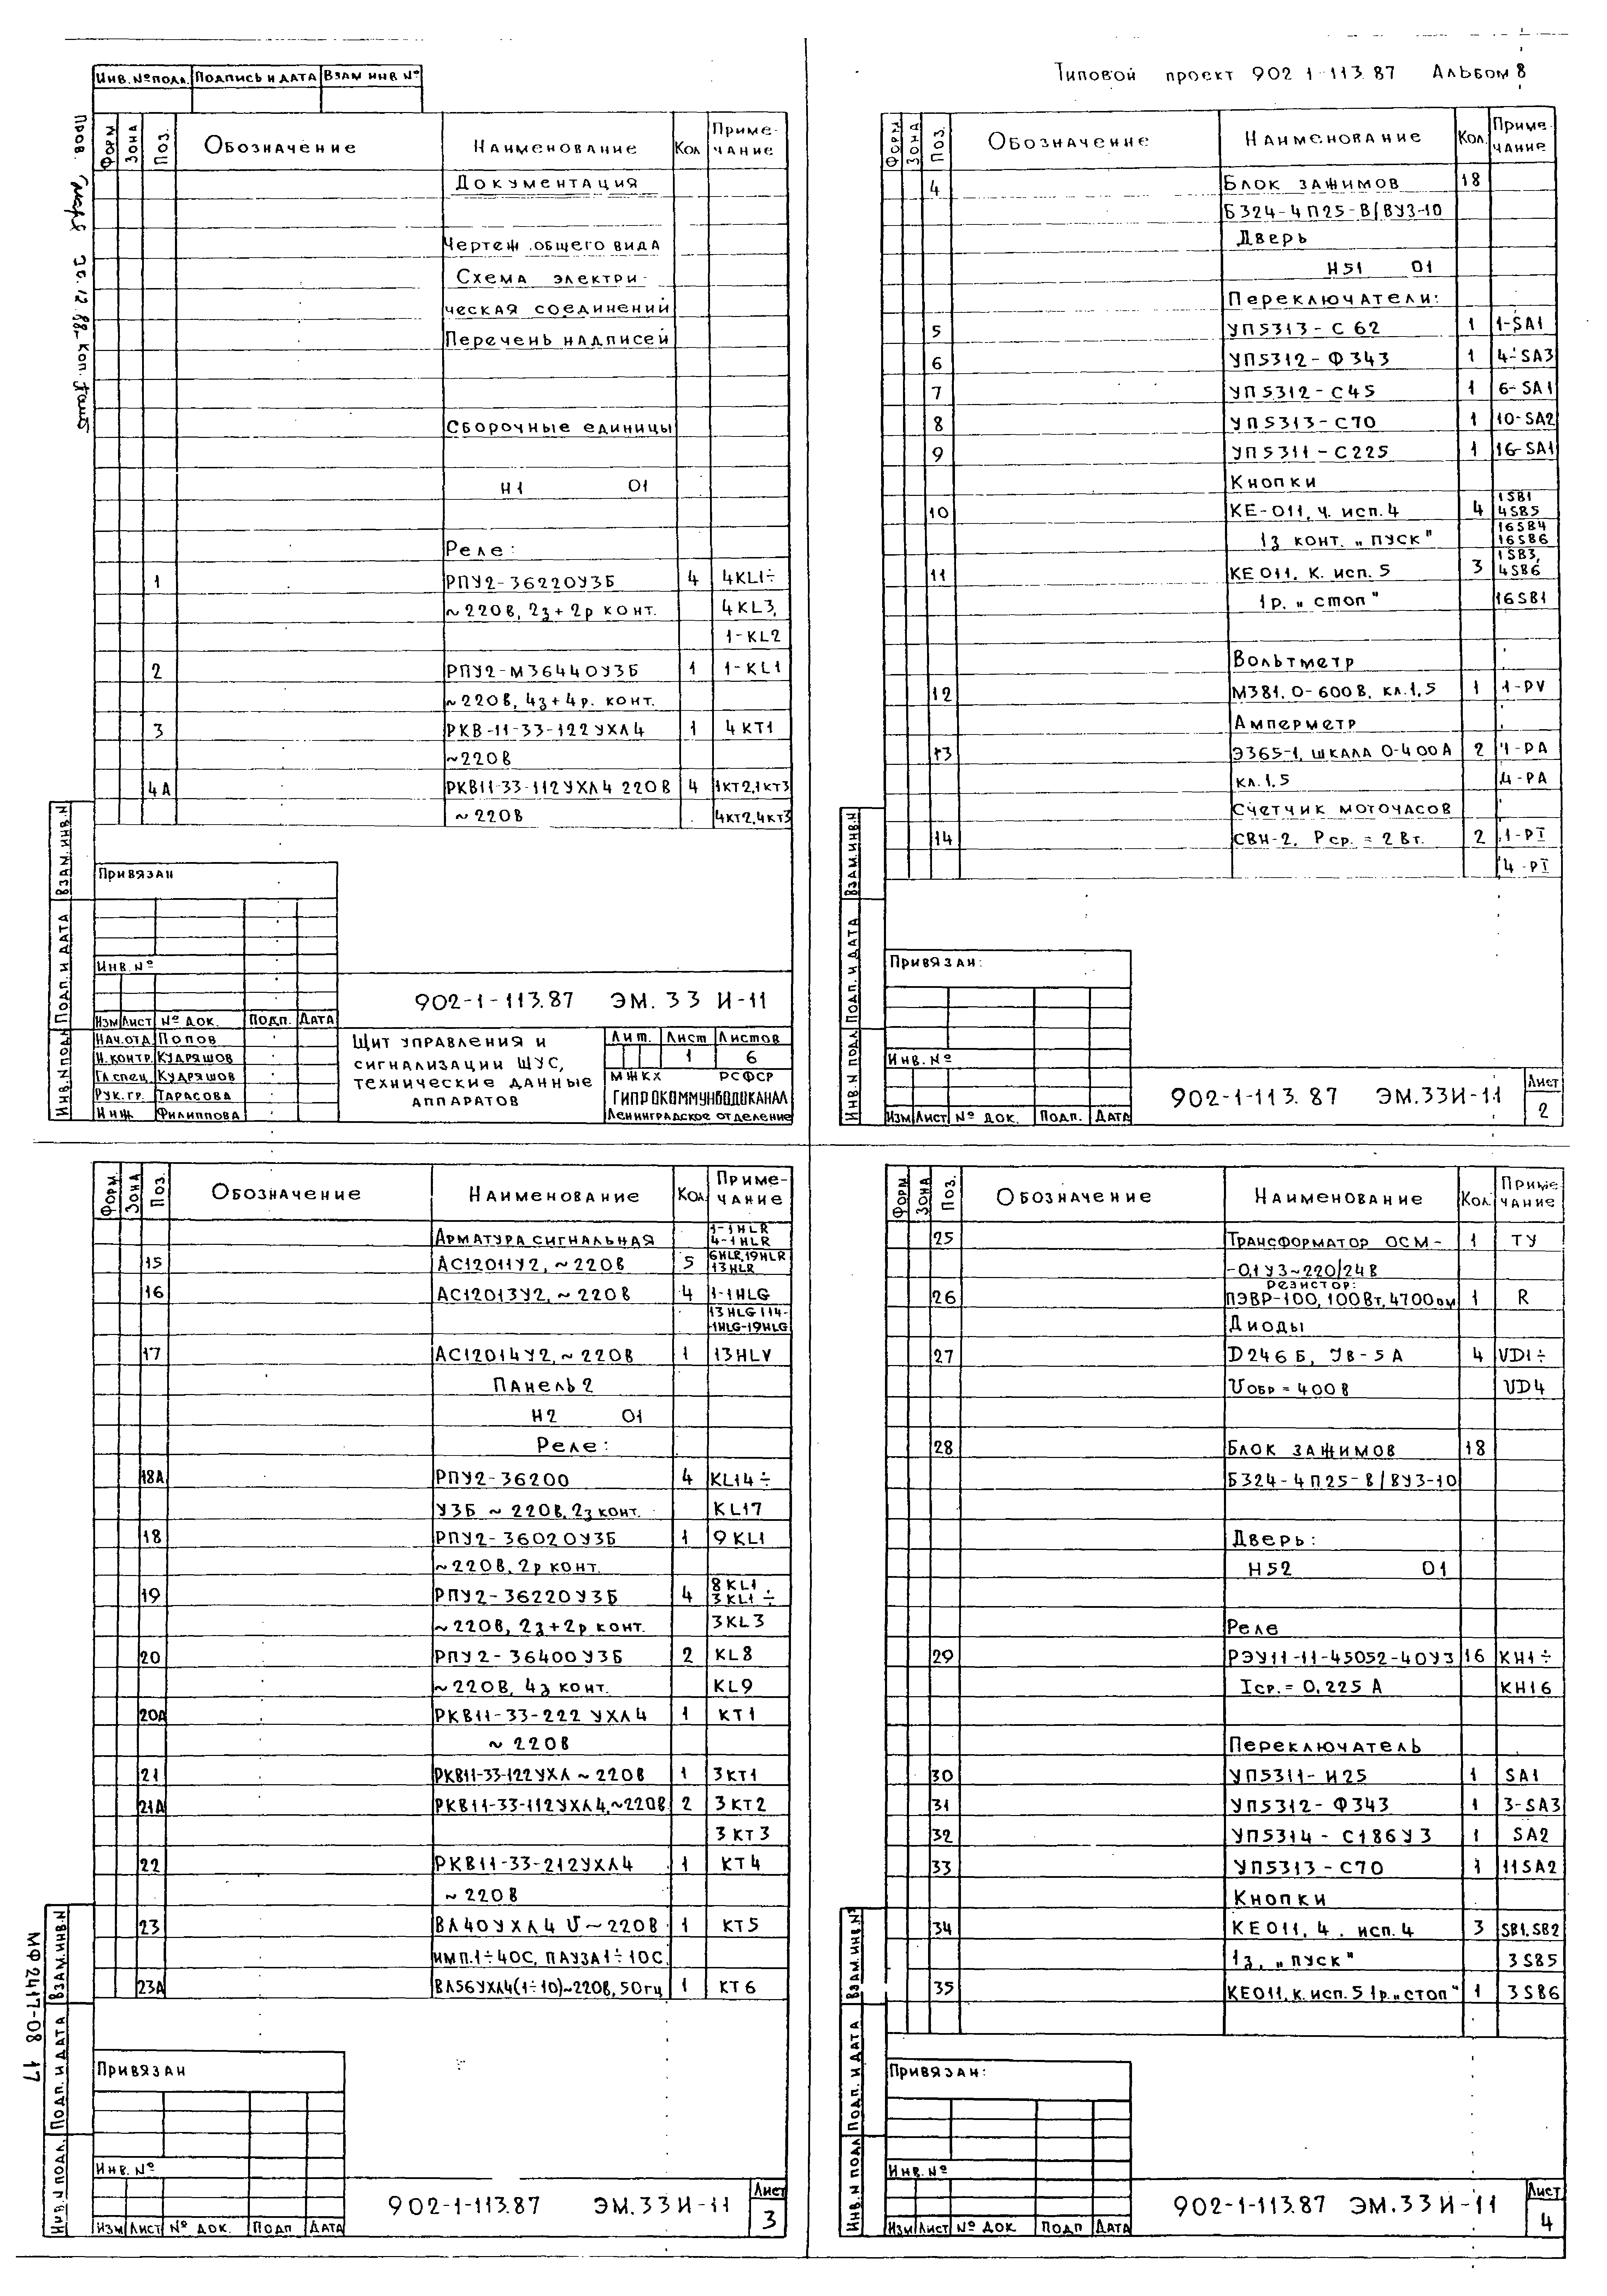 Инв. № подл. Подпись и дата Взам инв №
Форм Зона Поз. Обозначение Наименование Кол Примечание
Документация
Чертеж общего вида
Схема электри-
ческая соединений
Перечень надписей
Сборочные единицы
Н1 01
Реле:
1 РПУ2-36220У3Б 4 4KL1÷
~220В, 2з+2р конт. 4KL3,
1-KL2
2 РПУ2-М36440У3Б 1 1-KL1
~220В, 4з+4р. конт.
3 РКВ-11-33-122УХЛ4 1 4КТ1
~220В
4А РКВ11-33-112УХЛ4 220В 4 1КТ2,1КТ3
~220В 4КТ2,4КТ3
Привязан
Инв. №
Изм Лист № док. Подп. Дата
Нач.отд. Попов
Н.контр. Кудряшов
Гл.спец. Кудряшов
Рук.гр. Тарасова
Инж Филиппова
902-1-113.87 ЭМ. 33 И-11
Щит управления и
сигнализации ШУС,
технические данные
аппаратов
Лит. Лист Листов
1 6
МЖКХ РСФСР
ГИПРОКОММУНВОДОКАНАЛ
Ленинградское отделение
Инв.N подл Подп. и дата Взам.инв.N
Типовой проект 902 1-113.87 Альбом 8
Форм Зона Поз. Обозначение Наименование Кол. Примечание
4 Блок зажимов 18
Б324-4П25-В/ВУ3-10
Дверь
Н51 01
Переключатели:
5 УП5313-С62 1 1-SA1
6 УП5312-Ф343 1 4-SA3
7 УП5312-С45 1 6-SA1
8 УП5313-С70 1 10-SA2
9 УП5311-С225 1 16-SA1
Кнопки
10 КЕ-011, ч. исп. 4 4 1SB1 4SB5
1з конт. „пуск" 16SB4 16SB6
11 КЕ011. К. исп. 5 3 1SB3, 4SB6
1р. „стоп" 16SB1
Вольтметр
12 М381. 0-600В, кл.1,5 1 1-PV
Амперметр
13 Э365-1, шкала 0-400А 2 1-PA
кл.1,5 4-PA
Счетчик моточасов
14 СВН-2, Рср. = 2Вт. 2 1-PI
4-PI
Привязан:
Инв. №
Изм Лист № док. Подп. Дата
902-1-113.87 ЭМ.33И-11
Лист
2
Инв.N подл. Подп. и дата Взам.инв.N
Форм. Зона Поз. Обозначение Наименование Кол Примечание
Арматура сигнальная 1-1HLR 4-1HLR
15 АС12011У2, ~220В 5 6HLR,19HLR 13HLR
16 АС12013У2, ~220В 4 1-1HLG
13HLG 114-
-1HLG-19HLG
17 АС12014У2, ~220В 1 13HLV
Панель 2
Н2 01
Реле:
18А РПУ2-36200 4 KL14÷
У3Б ~220В, 2з конт. KL17
18 РПУ2-36020У3Б 1 9KL1
~220В, 2р конт.
19 РПУ2-36220У3Б 4 8KL1 3KL1÷
~220В, 2з+2р конт. 3KL3
20 РПУ2-36400У3Б 2 KL8
~220В, 4з конт. KL9
20А РКВ11-33-222 УХЛ4 1 КТ1
~220В
21 РКВ11-33-122УХЛ ~220В 1 3КТ1
21А РКВ11-33-112УХЛ4,~220В 2 3КТ2
3КТ3
22 РКВ11-33-212УХЛ4 1 КТ4
~220В
23 ВЛ40УХЛ4 U~220В 1 КТ5
имп.1÷40С, пауза1÷10С
23А ВЛ56УХЛ4(1÷10)~220В, 50гц 1 КТ6
Привязан
Инв. №
Изм Лист № док. Подп Дата
902-1-113.87 ЭМ.33И-11
Лист
3
Инв.N подл. Подп. и дата Взам.инв.N
МФ2417-08 17
Форм Зона Поз. Обозначение Наименование Кол. Примечание
25 Трансформатор ОСМ- 1 ТУ
-0,1У3~220/24В
Резистор:
26 ПЭВР-100, 100Вт, 4700ом 1 R
Диоды
27 D246Б, Jв-5А 4 VD1÷
Uобр=400В VD4
28 Блок зажимов 18
Б324-4П25-В/ВУ3-10
Дверь:
Н52 01
Реле
29 РЭУ11-11-45052-40У3 16 КН1÷
Iср.=0,225А КН16
Переключатель
30 УП5311-И25 1 SA1
31 УП5312-Ф343 1 3-SA3
32 УП5314-С186У3 1 SA2
33 УП5313-С70 1 11SA2
Кнопки
34 КЕ011, 4. исп.4 3 SB1,SB2
1з. „пуск" 3SB5
35 КЕ011.к.исп.5 1р.„стоп" 1 3SB6
Привязан:
Инв. №
Изм Лист № док Подп Дата
902-1-113.87 ЭМ.33И-11
Лист
4
Инв.N подл Подп. и дата Взам.инв.N